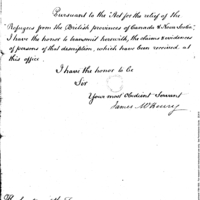 Pursuant to the Act for the relief of the
Refugees from the British provinces of Canada & Nova Scotia
I have the honor to transmit herewith, the claims & evidences
of persons of that description, which have been received at
this office
I have the honor to be
Sir
Your most Obedient Servant
James McHenry